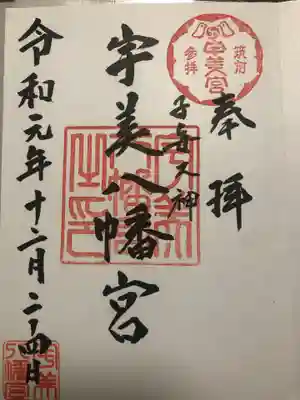 奉拝
筑前
宇美宮
参拝
子安大神
宇美八幡宮
令和元年十二月二四日
宇美
八幡宮